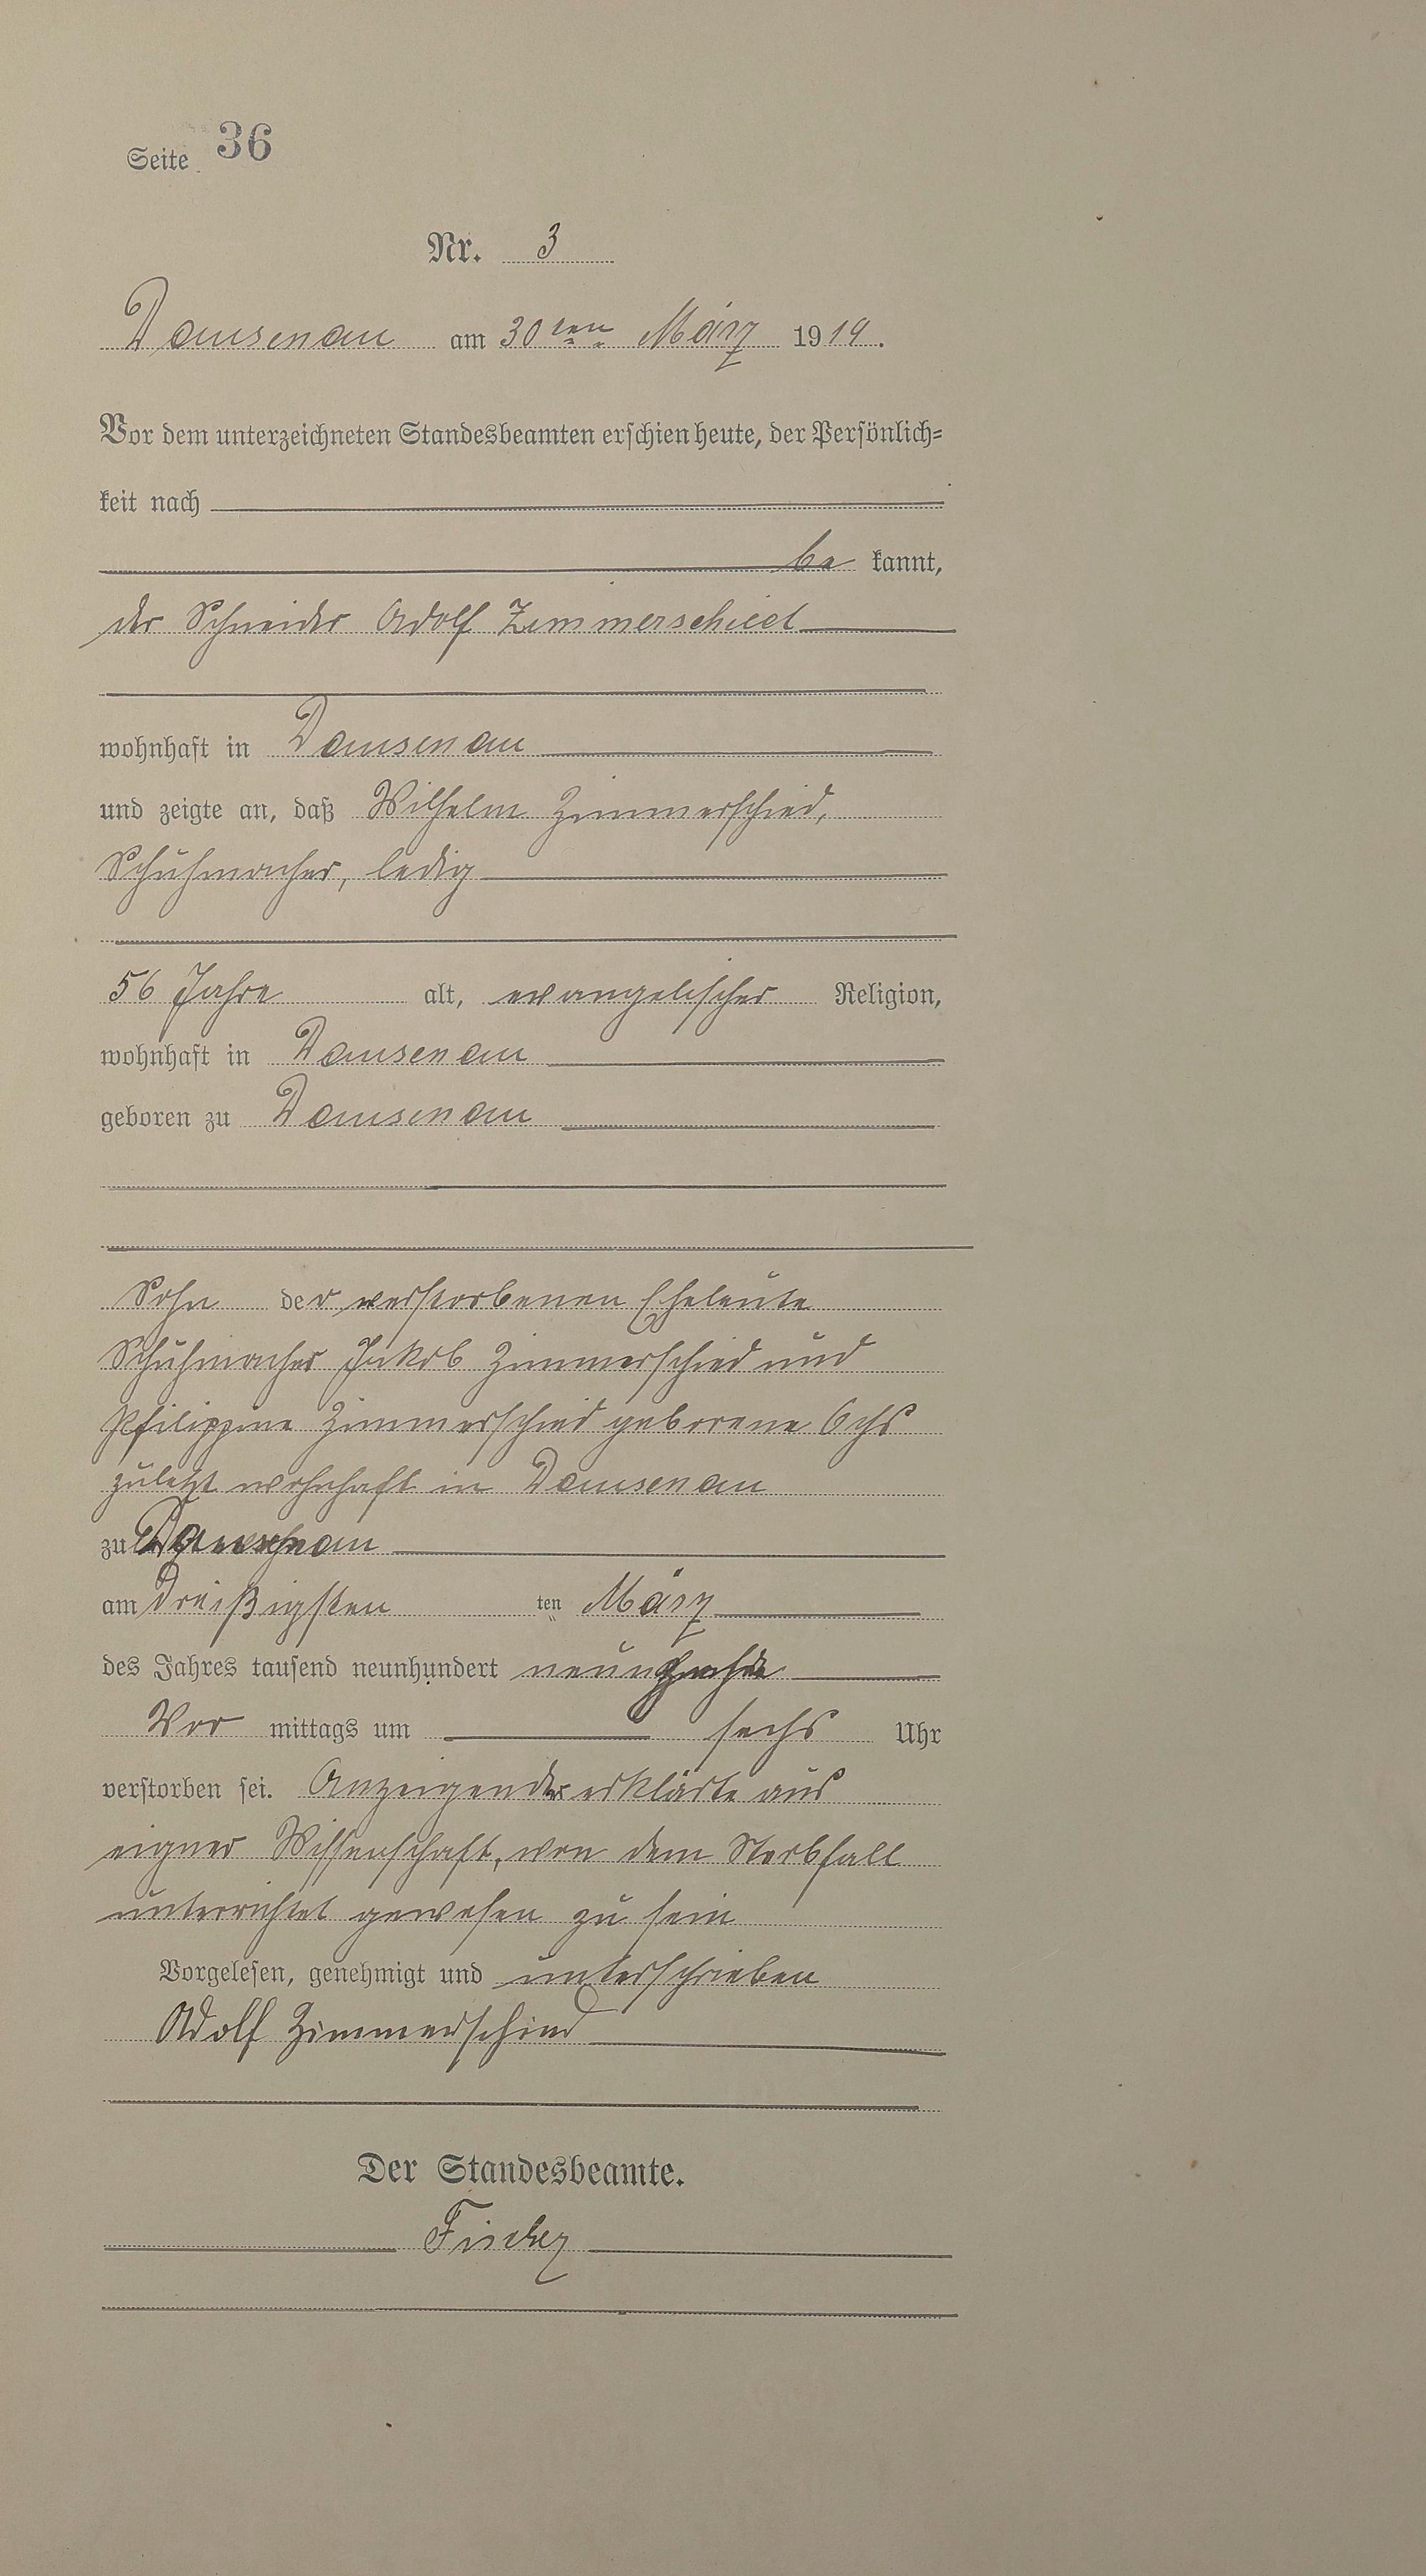 Seite 36
Nr. 3
Dausenau am 30ten März 1919.
Vor dem unterzeichneten Standesbeamten erschien heute, der Persönlich=
keit nach
be kannt,
der Schneider Adolf Zimmerschied
wohnhaft in Dausenau
und zeigte an, daß Wilhelm Zimmerschied,
Schuhmacher, ledig
56 Jahre alt, evangelischer Religion,
wohnhaft in Dausenau
geboren zu Dausenau
Sohn der verstorbenen Eheleute
Schuhmacher Jakob Zimmerschied und
Philippine Zimmerschied geborene Ochs
zuletzt wohnhaft in Dausenau
zu Dausenau
am dreißigsten ten März
des Jahres tausend neunhundert neunzehn
Vor mittags um sechs Uhr
verstorben sei. Anzeigender erklärte aus
eigner Wissenschaft, von dem Sterbfall
unterrichtet gewesen zu sein
Vorgelesen, genehmigt und unterschrieben
Adolf Zimmerschied
Der Standesbeamte.
Fischer